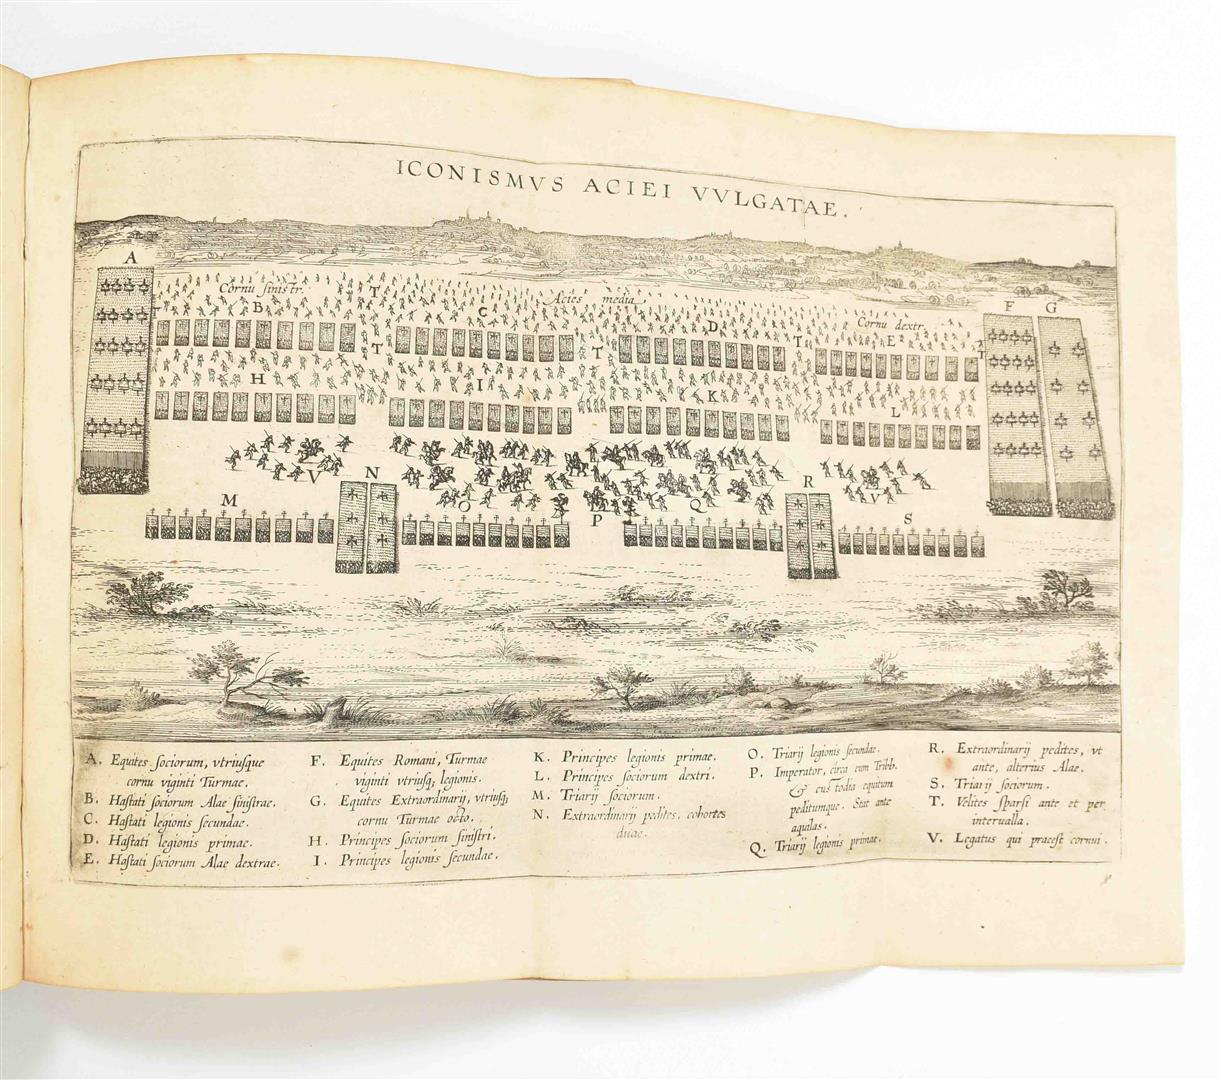 ICONISMVS ACIEI VVLGATAE.
A
F
G
Cornu sinistr.
T
Acies media
Cornu dextr.
B
C
D
E
T
T
T
T
H
I
K
L
V
N
R
V
M
O
P
Q
S
A. Equites sociorum, vtriusque
cornu viginti Turmae.
B. Hastati sociorum Alae sinistrae.
C. Hastati legionis secundae.
D. Hastati legionis primae.
E. Hastati sociorum Alae dextrae.
F. Equites Romani, Turmae
viginti vtriusq; legionis.
G. Equites Extraordinarij, vtriusq;
cornu Turmae octo.
H. Principes sociorum sinistri.
I. Principes legionis secundae.
K. Principes legionis primae.
L. Principes sociorum dextri.
M. Triarij sociorum.
N. Extraordinarij pedites, cohortes
duae.
O. Triarij legionis secundae.
P. Imperator, circa eum Tribb.
& custodia equitum
peditumque. Stat ante
aquilas.
Q. Triarij legionis primae.
R. Extraordinarij pedites, vt
ante, alterius Alae.
S. Triarij sociorum.
T. Velites sparsi ante et per
interualla.
V. Legatus qui praeest cornui.